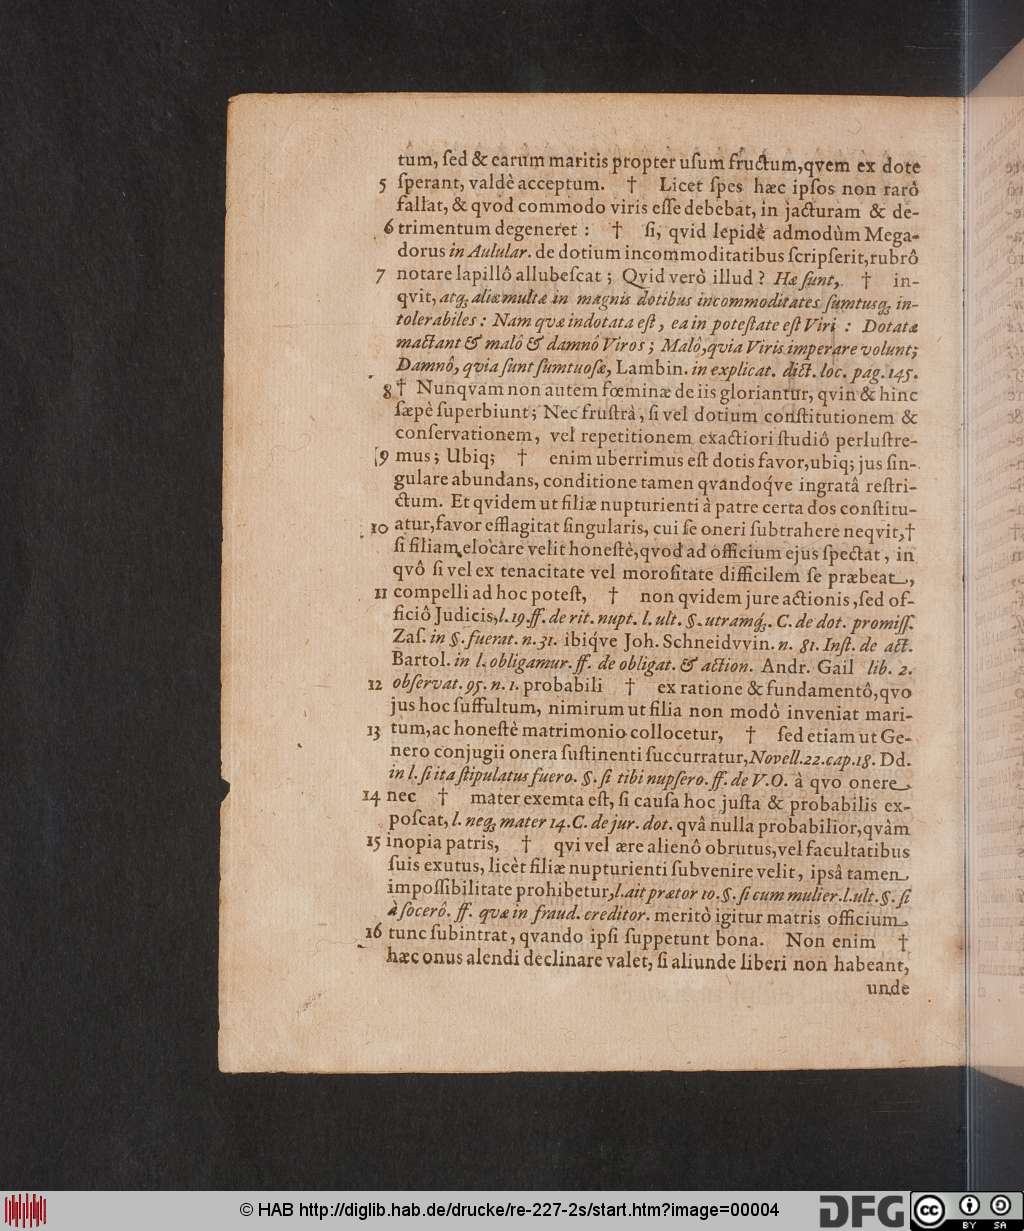 tum, ſed & earum maritis propter uſum fructum, qvem ex dote
5 ſperant, valdè acceptum. † Licet ſpes hæc ipſos non rarò
fallat, & qvod commodo viris eſſe debebat, in jacturam & de-
6 trimentum degeneret : † ſi, qvid lepidè admodùm Mega-
dorus in Aulular. de dotium incommoditatibus ſcripſerit, rubrô
7 notare lapillô allubeſcat ; Qvid verò illud ? Hæ ſunt, † in-
qvit, atq; aliæ multæ in magnis dotibus incommoditates ſumtusq; in-
tolerabiles : Nam qvæ indotata eſt, ea in poteſtate eſt Viri : Dotatæ
mactant & malô & damnô Viros ; Malô, qvia Viris imperare volunt;
Damnô, qvia ſunt ſumtuoſæ, Lambin. in explicat. dict. loc. pag. 145.
8 † Nunqvam non autem fœminæ de iis gloriantur, qvin & hinc
ſæpè ſuperbiunt ; Nec fruſtrà, ſi vel dotium conſtitutionem &
conſervationem, vel repetitionem exactiori ſtudiô perluſtre-
9 mus ; Ubiq; † enim uberrimus eſt dotis favor, ubiq; jus ſin-
gulare abundans, conditione tamen qvandoq́ve ingratâ reſtri-
ctum. Et qvidem ut filiæ nupturienti à patre certa dos conſtitu-
10 atur, favor efflagitat ſingularis, cui ſe oneri ſubtrahere neqvit, †
ſi filiam elocare velit honeſtè, qvod ad officium ejus ſpectat, in
qvô ſi vel ex tenacitate vel moroſitate difficilem ſe præbeat,
11 compelli ad hoc poteſt, † non qvidem jure actionis, ſed of-
ficiô Judicis, l. 19. ff. de rit. nupt. l. ult. §. utramq́;. C. de dot. promiſſ.
Zaſ. in §. fuerat. n. 31. ibiq́ve Joh. Schneidvvin. n. 81. Inſt. de act.
Bartol. in l. obligamur. ff. de obligat. & action. Andr. Gail lib. 2.
12 obſervat. 95. n. 1. probabili † ex ratione & fundamentô, qvo
jus hoc ſuffultum, nimirum ut filia non modò inveniat mari-
13 tum, ac honeſtè matrimonio collocetur, † ſed etiam ut Ge-
nero conjugii onera ſuſtinenti ſuccurratur, Novell. 22. cap. 18. Dd.
in l. ſi ita ſtipulatus fuero. §. ſi tibi nupſero. ff. de V. O. à qvo onere
14 nec † mater exemta eſt, ſi cauſa hoc juſta & probabilis ex-
poſcat, l. neq; mater 14. C. de jur. dot. qvâ nulla probabilior, qvàm
15 inopia patris, † qvi vel ære alienô obrutus, vel facultatibus
ſuis exutus, licèt filiæ nupturienti ſubvenire velit, ipsâ tamen
impoſſibilitate prohibetur, l. ait prætor 10. §. ſi cum mulier. l. ult. §. ſi
à ſocerô. ff. qvæ in fraud. creditor. meritò igitur matris officium
16 tunc ſubintrat, qvando ipſi ſuppetunt bona. Non enim †
hæc onus alendi declinare valet, ſi aliunde liberi non habeant,
unde
© HAB http://diglib.hab.de/drucke/re-227-2s/start.htm?image=00004
DFG
cc BY SA